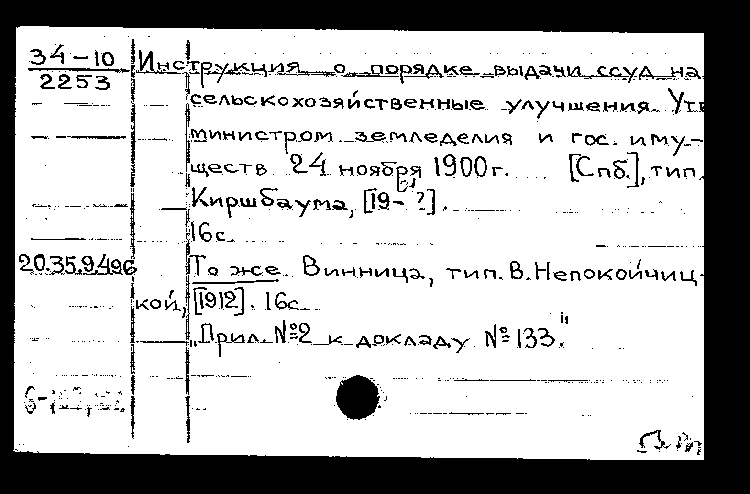 34-10 Инструкция о порядке выдачи ссуд на
2253
сельскохозяйственные улучшения. Утв
министром земледелия и гос. иму-
ществ 24 ноября 1900г. [Спб.], тип.
Киршбаума, [19-?].
16с.
20.35.9.496 То же. Винница, тип. В. Непокойчиц-
кой, [1912]. 16с.
„Прил. №2 к докладу №133."